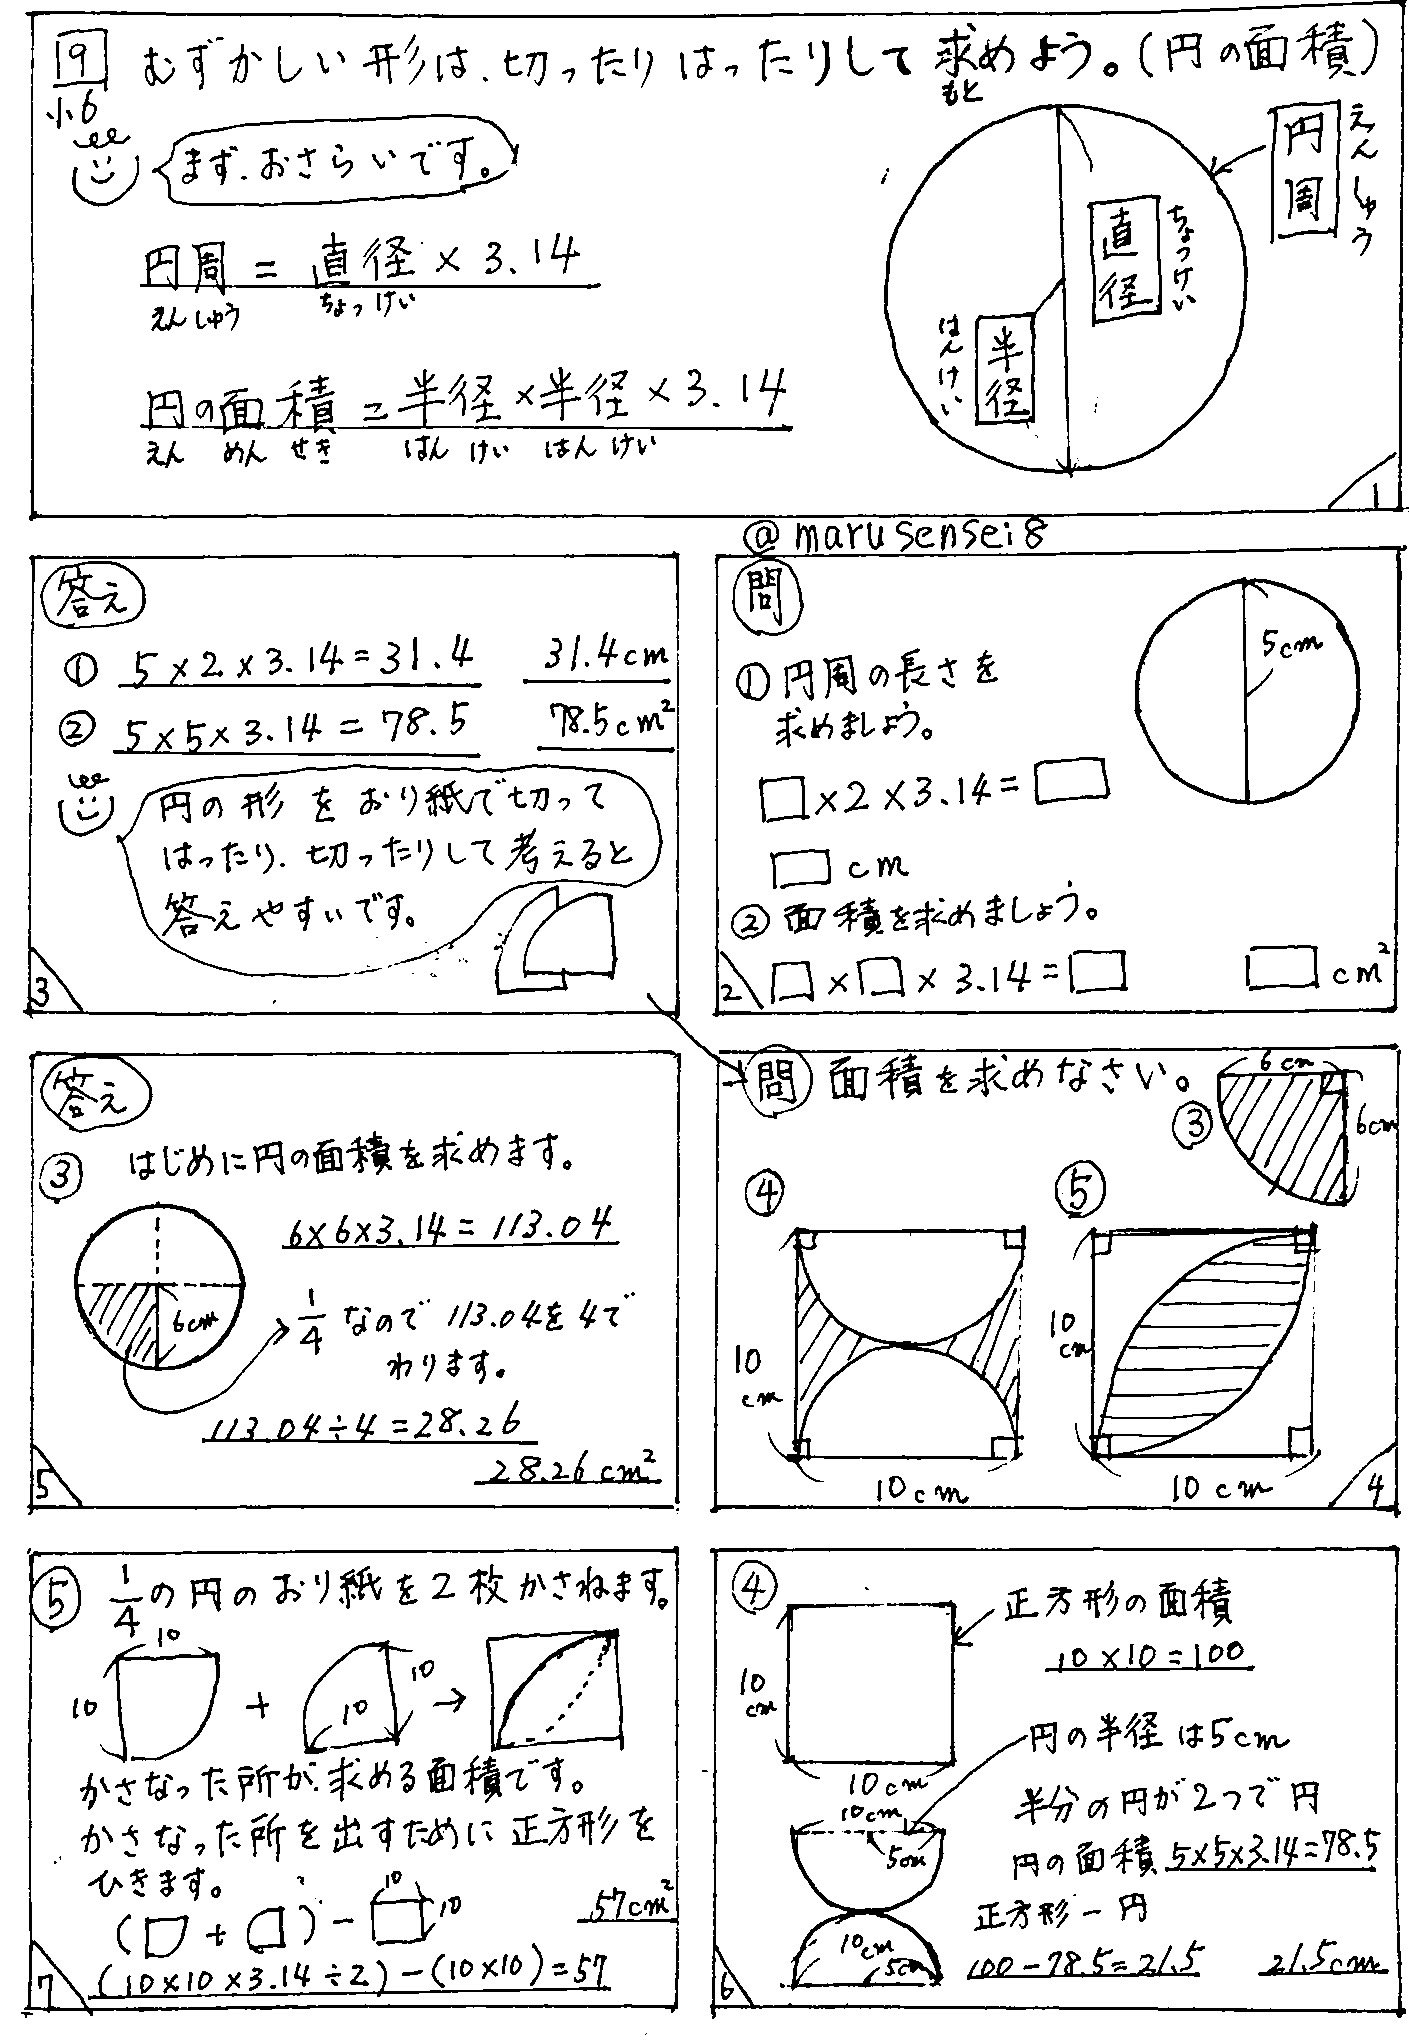 9 むずかしい形は、切ったりはったりして求めよう。(円の面積)
もと
小6
まず、おさらいです。
円周 = 直径 × 3.14
えんしゅう ちょっけい
円の面積 = 半径×半径×3.14
えん めんせき はんけい はんけい
円周
えんしゅう
直径
ちょっけい
半径
はんけい
1
@marusensei8
問
5cm
①円周の長さを
求めましょう。
□×2×3.14=□
□cm
②面積を求めましょう。
□×□×3.14=□ □cm²
2
答え
① 5×2×3.14=31.4 31.4cm
② 5×5×3.14=78.5 78.5cm²
円の形をおり紙で切って
はったり、切ったりして考えると
答えやすいです。
3
問 面積を求めなさい。
③ 6cm 6cm
④ 10cm 10cm
⑤ 10cm 10cm
4
答え
③ はじめに円の面積を求めます。
6×6×3.14=113.04
6cm
1/4なので113.04を4で
わります。
113.04÷4=28.26
28.26cm²
5
④
正方形の面積
10×10=100
10cm
10cm
円の半径は5cm
10cm
5cm
半分の円が2つで円
円の面積 5×5×3.14=78.5
正方形-円
10cm
5cm
100-78.5=21.5 21.5cm
6
⑤ 1/4の円のおり紙を2枚かさねます。
10
10 + 10 10 →
かさなった所が、求める面積です。
かさなった所を出すために正方形を
ひきます。
( + ) - 10 10
57cm²
(10×10×3.14÷2)-(10×10)=57
7